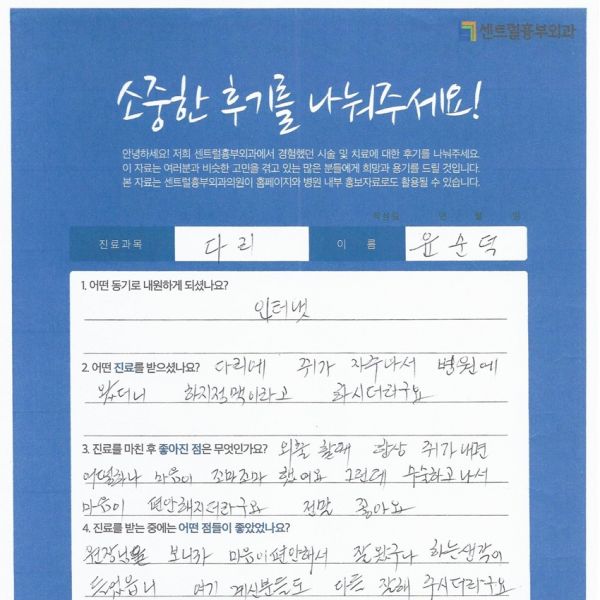 센트럴흉부외과
소중한 후기를 나눠주세요!
안녕하세요! 저희 센트럴흉부외과에서 경험했던 시술 및 치료에 대한 후기를 나눠주세요.
이 자료는 여러분과 비슷한 고민을 겪고 있는 많은 분들에게 희망과 용기를 드릴 것입니다.
본 자료는 센트럴흉부외과의원이 홈페이지와 병원 내부 홍보자료로도 활용될 수 있습니다.
작성일 년 월 일
진료과목 다리 이 름 윤순덕
1. 어떤 동기로 내원하게 되셨나요?
인터넷
2. 어떤 진료를 받으셨나요? 다리에 쥐가 자주나서 병원에
왔더니 하지정맥이라고 하시더라구요
3. 진료를 마친 후 좋아진 점은 무엇인가요? 외출 할때 항상 쥐가나면
어떡하나 마음이 조마조마 했어요 그런데 수술하고 나서
마음이 편안해지더라구요 정말 좋아요
4. 진료를 받는 중에는 어떤 점들이 좋았었나요?
원장님을 보니까 마음이편안해서 잘왔구나 하는생각이
여기 계신분들도 다들 잘해 주시더라구요